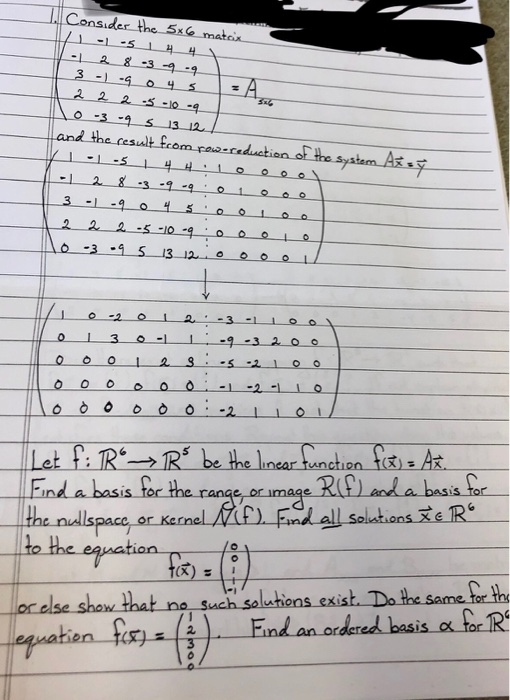 1. Consider the 5x6 matrix
1 -1 -5 1 4 4
-1 2 8 -3 -9 -9
3 -1 -9 0 4 5
2 2 2 -5 -10 -9
0 -3 -9 5 13 12
= A5x6
and the result from row-reduction of the system Ax⃗ = y⃗
1 -1 -5 1 4 4 : 1 0 0 0 0
-1 2 8 -3 -9 -9 : 0 1 0 0 0
3 -1 -9 0 4 5 : 0 0 1 0 0
2 2 2 -5 -10 -9 : 0 0 0 1 0
0 -3 -9 5 13 12 : 0 0 0 0 1
↓
1 0 -2 0 1 2 : -3 -1 1 0 0
0 1 3 0 -1 1 : -9 -3 2 0 0
0 0 0 1 2 3 : -5 -2 1 0 0
0 0 0 0 0 0 : -1 -2 -1 1 0
0 0 0 0 0 0 : -2 1 1 0 1
Let f: ℝ⁶ → ℝ⁵ be the linear function f(x⃗) = Ax⃗.
Find a basis for the range, or image R(f) and a basis for
the nullspace, or kernel N(f). Find all solutions x⃗ ∈ ℝ⁶
to the equation
f(x⃗) = (0 0 1 1 -1)
or else show that no such solutions exist. Do the same for the
equation f(x⃗) = (1 2 3 0 0). Find an ordered basis α for ℝ⁶